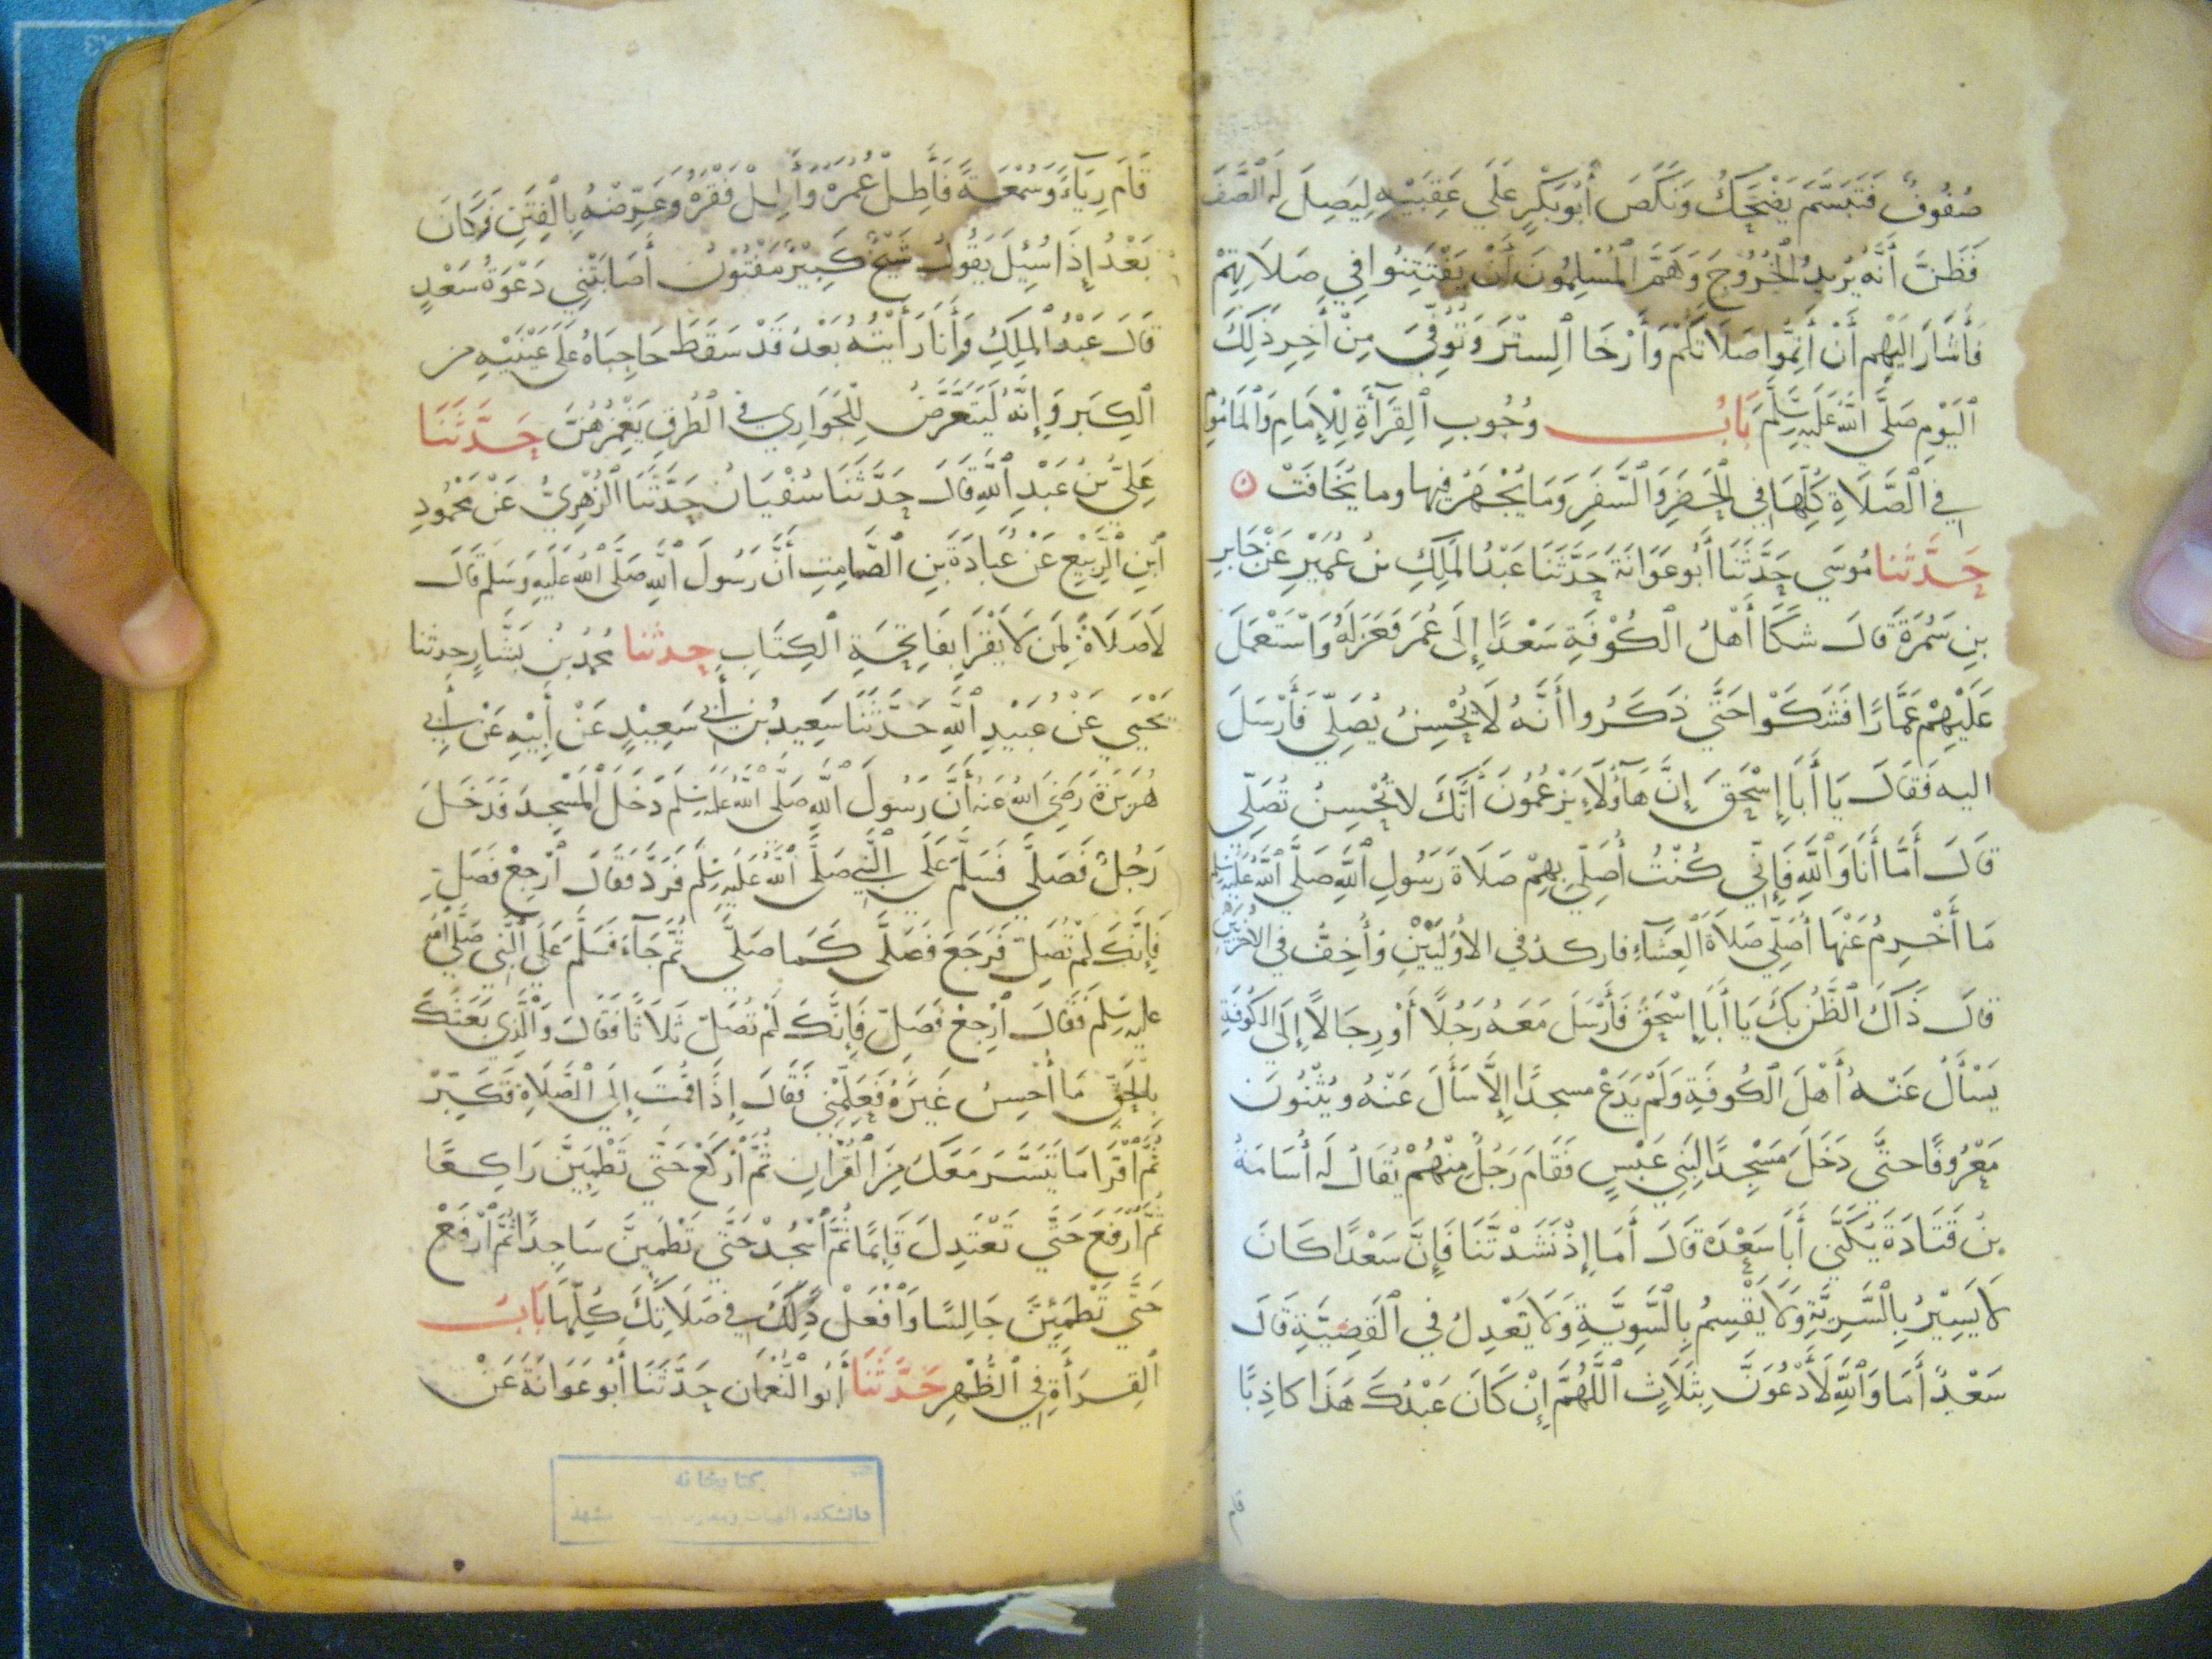 صُفُوفٌ فَتَبَسَّمَ يَضْحَكُ وَنَكَصَ أَبُو بَكْرٍ عَلَي عَقِبَيْهِ لِيَصِلَ لَهُ الصَّفَّ
فَظَنَّ أَنَّهُ يُرِيدُ الْخُرُوجَ وَهَمَّ الْمُسْلِمُونَ أَنْ يَفْتَتِنُوا فِي صَلَاتِهِمْ
فَأَشَارَ إِلَيْهِم أَنْ أَتِمُّوا صَلَاتَكُمْ وَأَرْخَا السِّتْرَ وَتُوُفِّيَ مِنْ أَخِرِ ذَلِكَ
الْيَوْمِ صَلَّى اللَّهُ عَلَيْهِ وَسَلَّمَ بَابُ وُجُوبِ الْقِرَآءَةِ لِلْإِمَامِ وَالْمَامُومِ
فِي الصَّلَاةِ كُلِّهَا فِي الْحَضَرِ وَالسَّفَرِ وَمَا يُجْهَرُ فِيهَا وما يُخَافَتْ ه
حَدَّثَنا مُوسَي حَدَّثَنَا أَبُو عَوَانَةَ حَدَّثَنَا عَبْدُ الْمَلِكِ بنُ عُمَيْرٍ عَنْ جَابِرِ
بنِ سَمُرَةَ قَالَ شَكَا أَهْلُ الْكُوْفَةِ سَعْدًا إِلَى عُمَرَ فَعَزَلَهُ وَاسْتَعْمَلَ
عَلَيْهِمْ عَمَّارًا فَشَكَوْا حَتَّي ذَكَرُوا أَنَّهُ لَا يُحْسِنُ يُصَلِّي فَأَرْسَلَ
اليه فَقَالَ يَا أَبَا إِسْحَقَ إِنَّ هَآؤُلَاءِ يَزْعُمُونَ أَنَّكَ لا تُحْسِنُ تُصَلِّي
قَالَ أَمَّا أَنَا وَاللَّهِ فَإِنِّي كُنْتُ أُصَلِّي بِهِمْ صَلَاةَ رَسُولِ اللَّهِ صَلَّى اللَّهُ عَلَيْهِ وَسَلَّمَ
مَا أَخْرِمُ عَنْهَا أُصَلِّي صَلَاةَ الْعِشَآءِ فاركدُ في الأُوْلَيَيْنِ وَأُخِفُّ فِي الأُخْرَيَيْنِ
قَالَ ذَاكَ الظَّنُّ بِكَ يَا أَبَا إِسْحَقَ فَأَرْسَلَ مَعَهُ رَجُلًا أَوْ رِجَالًا إِلَى الكُوفَةِ
يَسْأَلُ عَنْهُ أَهْلَ الْكُوفَةِ وَلَمْ يَدَعْ مسجدًا إِلَّا سَأَلَ عَنْهُ ويُثْنُونَ
مَعْرُوفًا حتَّي دَخَلَ مَسْجِدًا لِبَنِي عَبْسٍ فَقَامَ رَجُلٌ مِنْهُمْ يُقَالُ لَهُ أُسَامَةُ
بنُ قَتَادَةَ يُكَنَّي أَبَا سَعْدَةَ قَالَ أَمَا إِذْ نَشَدْتَّنَا فَإِنَّ سَعْدًا كَانَ
لَا يَسِيْرُ بِالسَّرِيَّةِ وَلَا يَقْسِمُ بِالسَّوِيَّةِ وَلَا يَعْدِلُ فِي الْقَضِيَّةِ قَالَ
سَعْدٌ أَمَا وَاللَّهِ لَأَدْعُوَنَّ بِثَلَاثٍ اللَّهُمَّ إِنْ كَانَ عَبْدُكَ هَذَا كاذِبًا
قام
قَامَ رِيَآءً وَسُمْعَةً فَأَطِلْ عُمُرَهُ وَأَطِلْ فَقْرَهُ وَعَرِّضْهُ بِالْفِتَنِ فَكَانَ
بَعْدُ إِذَا سُئِلَ يَقُولُ شَيْخٌ كَبِيْرٌ مَفْتُوْنٌ أَصَابَتْنِي دَعْوَةُ سَعْدٍ
قَالَ عَبْدُ الْمَلِكِ وَأَنَا رَأَيْتُهُ بَعْدُ قَدْ سَقَطَ حَاجِبَاهُ عَلَى عَيْنَيْهِ من
الْكِبَرِ وَإِنَّهُ لَيَتَعَرَّضُ لِلْجَوَارِي فِي الطُّرُقِ يَغْمِزُهُنَّ حَدَّثَنَا
عَلِيُّ بْنُ عَبْدِ اللَّهِ قَالَ حَدَّثَنَا سُفْيَانُ حَدَّثَنَا الزُّهْرِيُّ عَنْ مَحْمُودِ
ابْنِ الرَّبِيْعِ عَنْ عُبَادَةَ بنِ الصَّامِتِ أَنَّ رَسُولَ اللَّهِ صَلَّى اللَّهُ عَلَيْهِ وَسَلَّم قَالَ
لَا صَلَاةَ لِمَن لَا يَقْرَأ بِفَاتِحَةِ الْكِتَابِ حدثنا محمدُ بنُ بَشَّارٍ حدثنا
يَحْيَي عَنْ عُبَيْدِ اللَّهِ حَدَّثَنَا سَعِيدُ بنُ أَبِي سَعِيْدٍ عَنْ أَبِيْهِ عَنْ أَبِي
هُرَيْرَةَ رَضِيَ اللَّهُ عَنْهُ أَنَّ رَسُولَ اللَّهِ صَلَّى اللَّهُ عَلَيْهِ وَسَلَّم دَخَلَ الْمَسْجِدَ فَدَخَلَ
رَجُلٌ فَصَلَّي فَسَلَّمَ عَلَي النَّبِي صَلَّى اللَّهُ عَلَيْهِ وَسَلَّم فَرَدَّ فَقَالَ ارْجِعْ فَصَلِّ
فَإِنَّكَ لَمْ تُصَلِّ فَرَجَعَ فَصَلَّى كَمَا صَلَّي ثُمَّ جَآءَ فَسَلَّمَ عَلَي النَّبِي صَلَّى اللَّهُ
عليه وَسَلَّم فَقَالَ ارْجِعْ فَصَلِّ فَإِنَّكَ لَمْ تُصَلِّ ثَلَاثًا فَقَالَ وَالَّذِي بَعَثَكَ
بِالْحَقِّ مَا أُحْسِنُ غَيْرَهُ فَعَلِّمْنِي فَقَالَ إِذَا قُمْتَ إِلَى الصَّلَاةِ فَكَبِّرْ
ثُمَّ اقْرَأ مَا تَيَسَّرَ مَعَكَ مِنَ الْقُرْآنِ ثُمَّ ارْكَعْ حَتَّي تَطْمَئِنَّ رَاكِعًا
ثُمَّ ارْفَعْ حَتَّي تَعْتَدِلَ قَائِمًا ثُمَّ اسْجُدْ حَتَّي تَطْمَئِنَّ سَاجِدًا ثُمَّ ارْفَعْ
حَتَّي تَطْمَئِنَّ جَالِسًا وَافْعَلْ ذَلِكَ فِي صَلَاتِكَ كُلِّهَا بَابُ
الْقِرَأَةِ فِي الظُّهْرِ حَدَّثَنَا أَبُو النُّعْمَانِ حَدَّثَنَا أَبُو عَوَانَةَ عَنْ
كتابخانه
دانشکده الهیات ومعارف مشهد